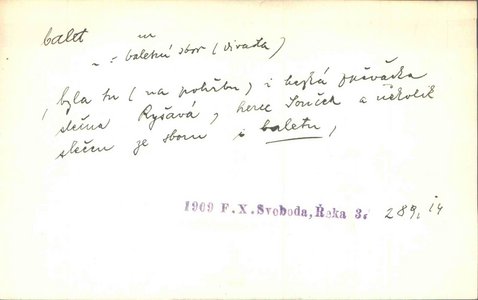 balet m
~ = baletní sbor (divadla)
, byla tu (na pohřbu) i hezká zpěvačka
slečna Ryšavá, herec Souček a několik
slečen ze sboru i baletu,
1909 F.X.Svoboda, Řeka 3. 289, 14